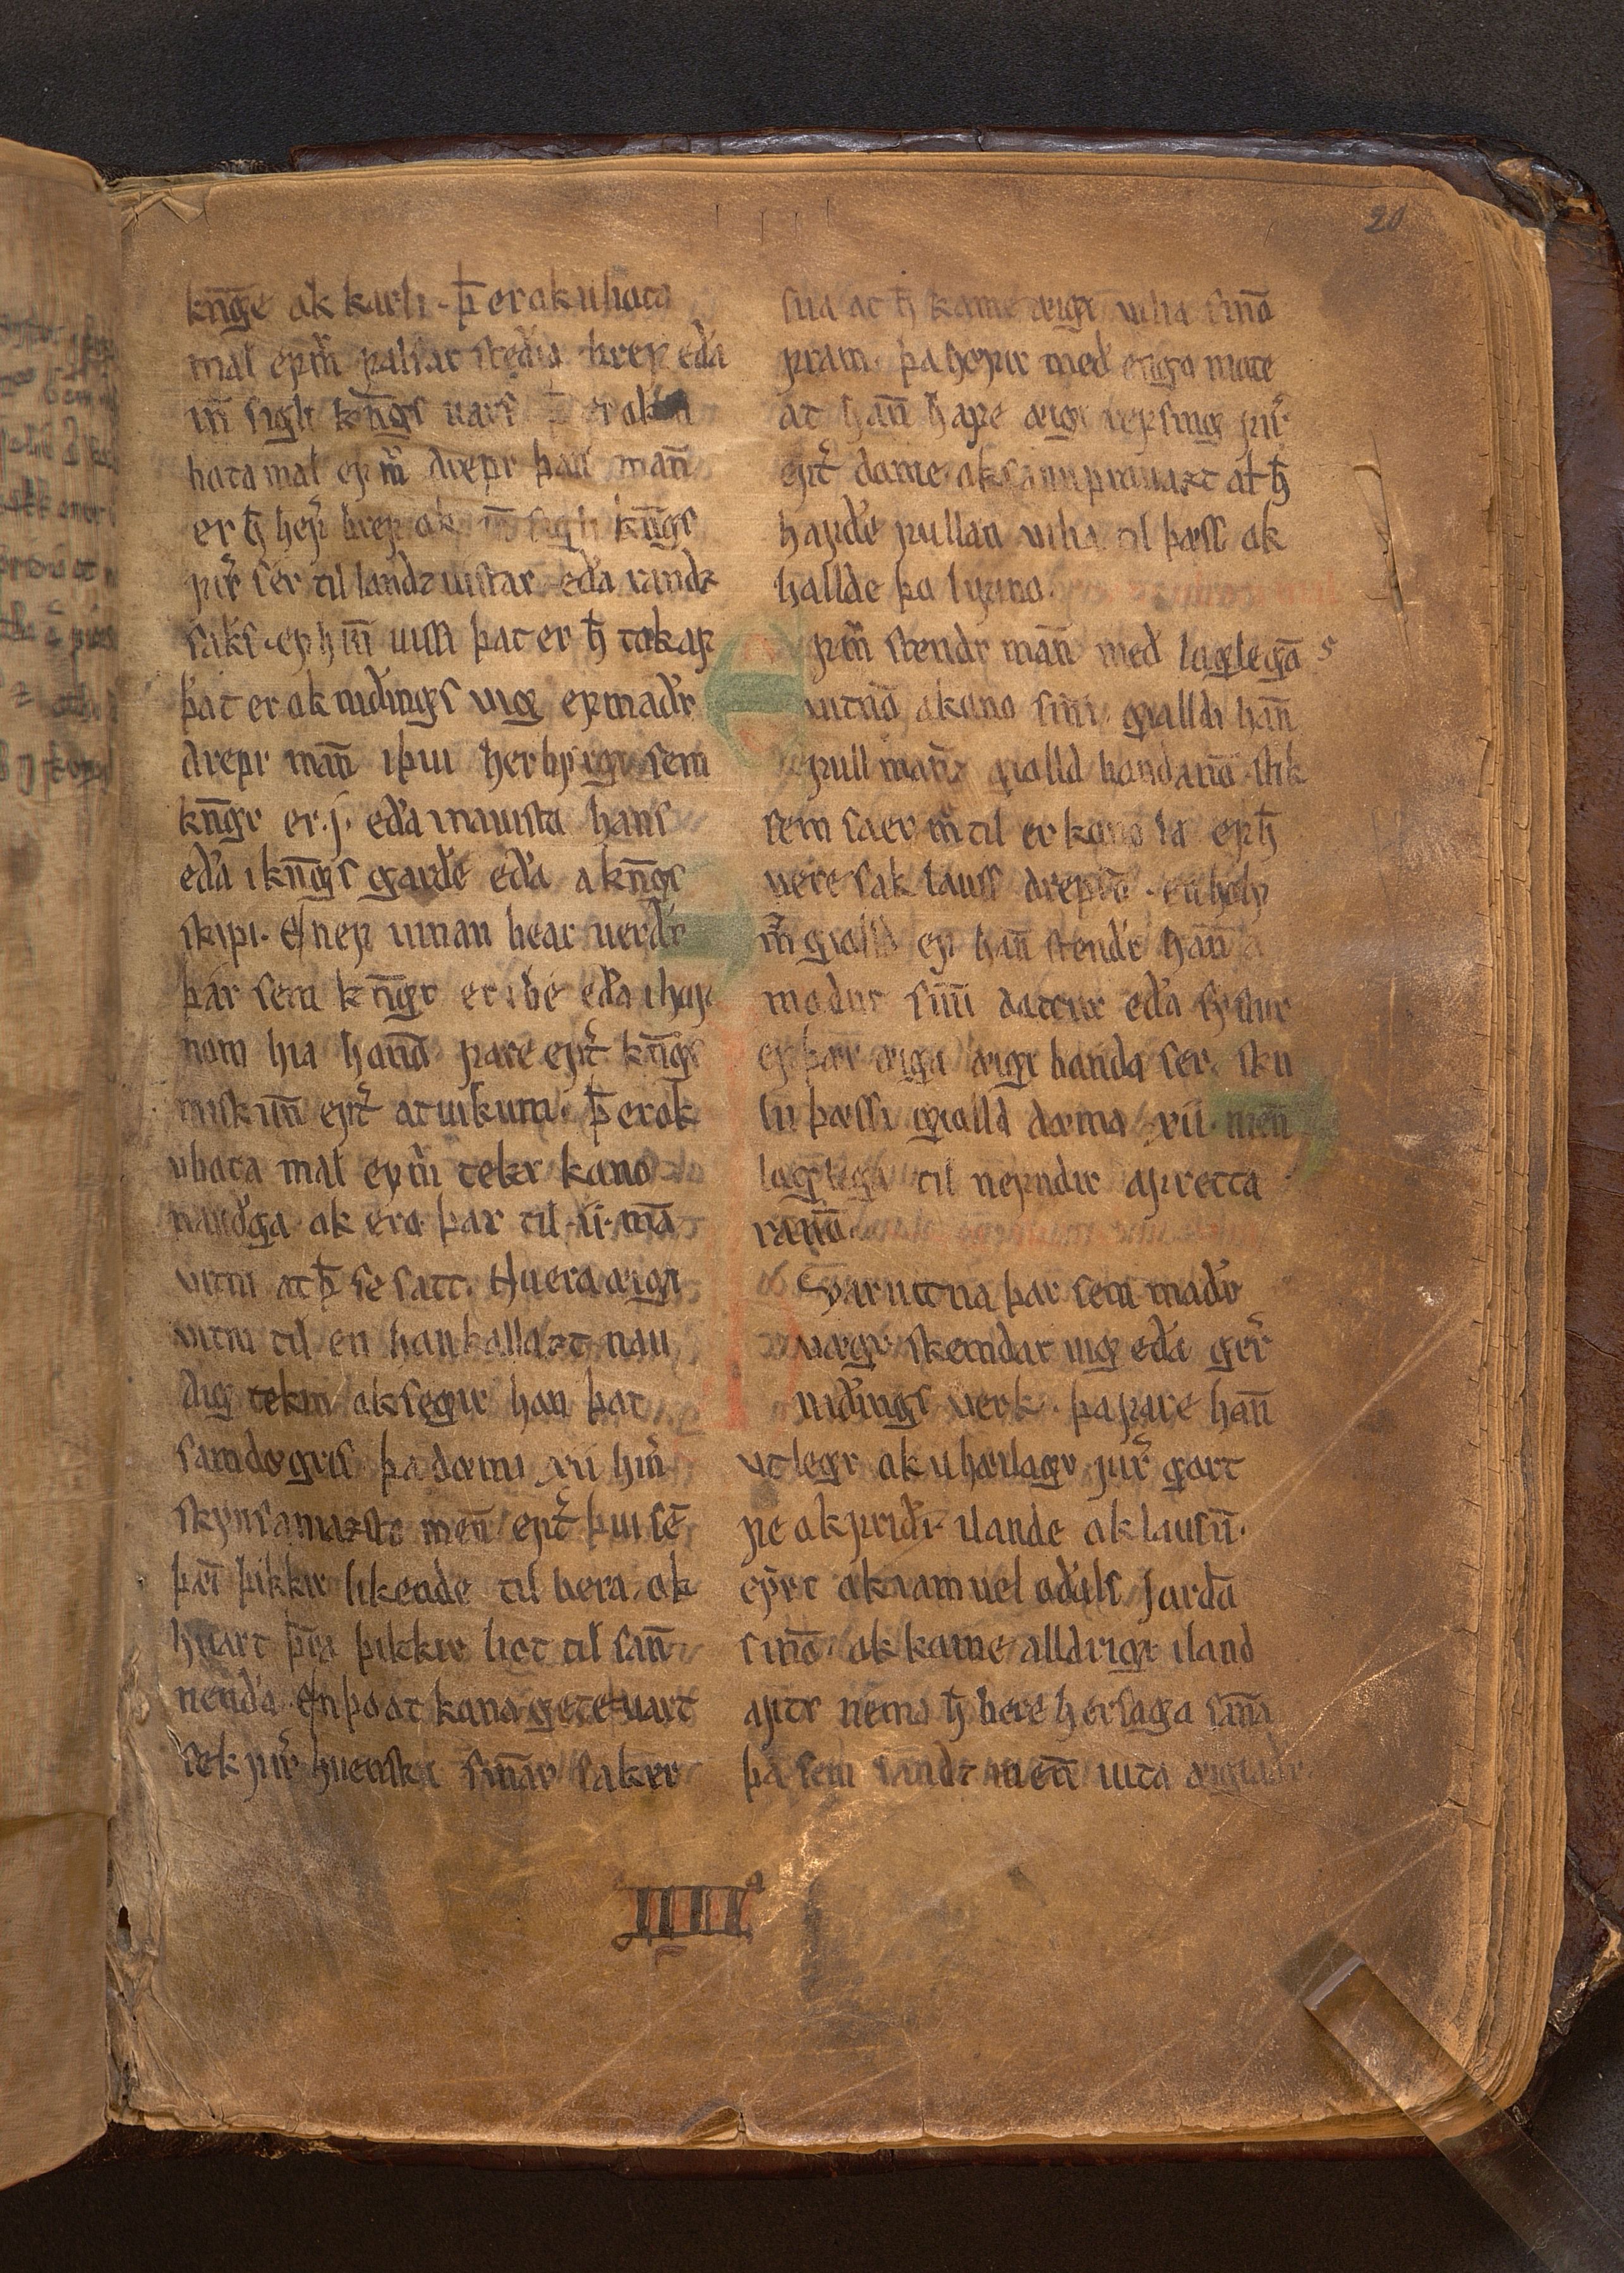 20
kn̄ge ok karli. þ̄ er ok uhota
mal ef m̄ falsar stedia bref eda
in̄ sigli kn̄gs uars þ̄ er ok u
bota mal ef m̄ drepr þan man̄
er h̄ hef̄ bref ok in̄ sigli kn̄gs
fur̄ ser til landz uistar eda rindz
saks. ef hin̄ uissi þat er h̄ tok af
þat er ok nidings uig ef madr
drepr man̄ i þui herbyrgi sem
kn̄gr er .j. eda in a uistu hans
eda i kn̄gs garde eda a kn̄gs
skipi. En ef uinan bear uerdr
þar sem kn̄gr er i bé eda i haf
nom hia hanō fare eft̄ kn̄gs
miskun̄ eft̄ at uikum. þ̄ er ok
ubota mal ef m̄ tekr kono
naudga. ok ero þar til .ii. mā
uitni at þ̄ se satt. Huera æigi
uitni til en han kallazt nau
dig tekin ok segir han þat
samdøgris þa domi xii hin̄
skynsamazsto men̄ eft̄ þui sē
þei̅ þikkir likende til bera. ok
huart þm̄ þikkir liot til san̄
nenda. En þo at kona gete uart
sek fur̄ huerski sin̄ar saker
sua at h̄ kome æigi uilia sinō
fram. þa hofir med engo mote
at han̄ hafe æigi refsing fir̄
eft̄ dome. ok sannprouazt at h̄
hafde fullan uilia til þess ok
hallde þo lyuno.
Ef m̄ stendr man̄ med loglegō 5
uitnō a kono sin̄i. gialldi han̄
fullman̄z giolld hondanō slik
sem sa er m̄ til er kono la ef h̄
uere sak lauss drepin̄. en holf
m̄ giolld ef han̄ stendr han̄ a
modur sin̄i dottur eda systur
ef þær æiga æigi bonda ser. sku
lu þessi giolld doma xii. men̄
loglega til nefndir af retta
ranō.
Suar uitna þar sem madr
uegr skemdar uig eda ger̄
nidings uerk. þa fare han̄
ut legr ok uheilagr. fir̄ gort
fe ok fridi. i lande ok lausū.
eyri ok iamuel odals jorda
sinō. ok kome alldrigi i land
aftr nema h̄ bere hersaga san̄a
þa sem landz men̄ uita æigi adr
IIII